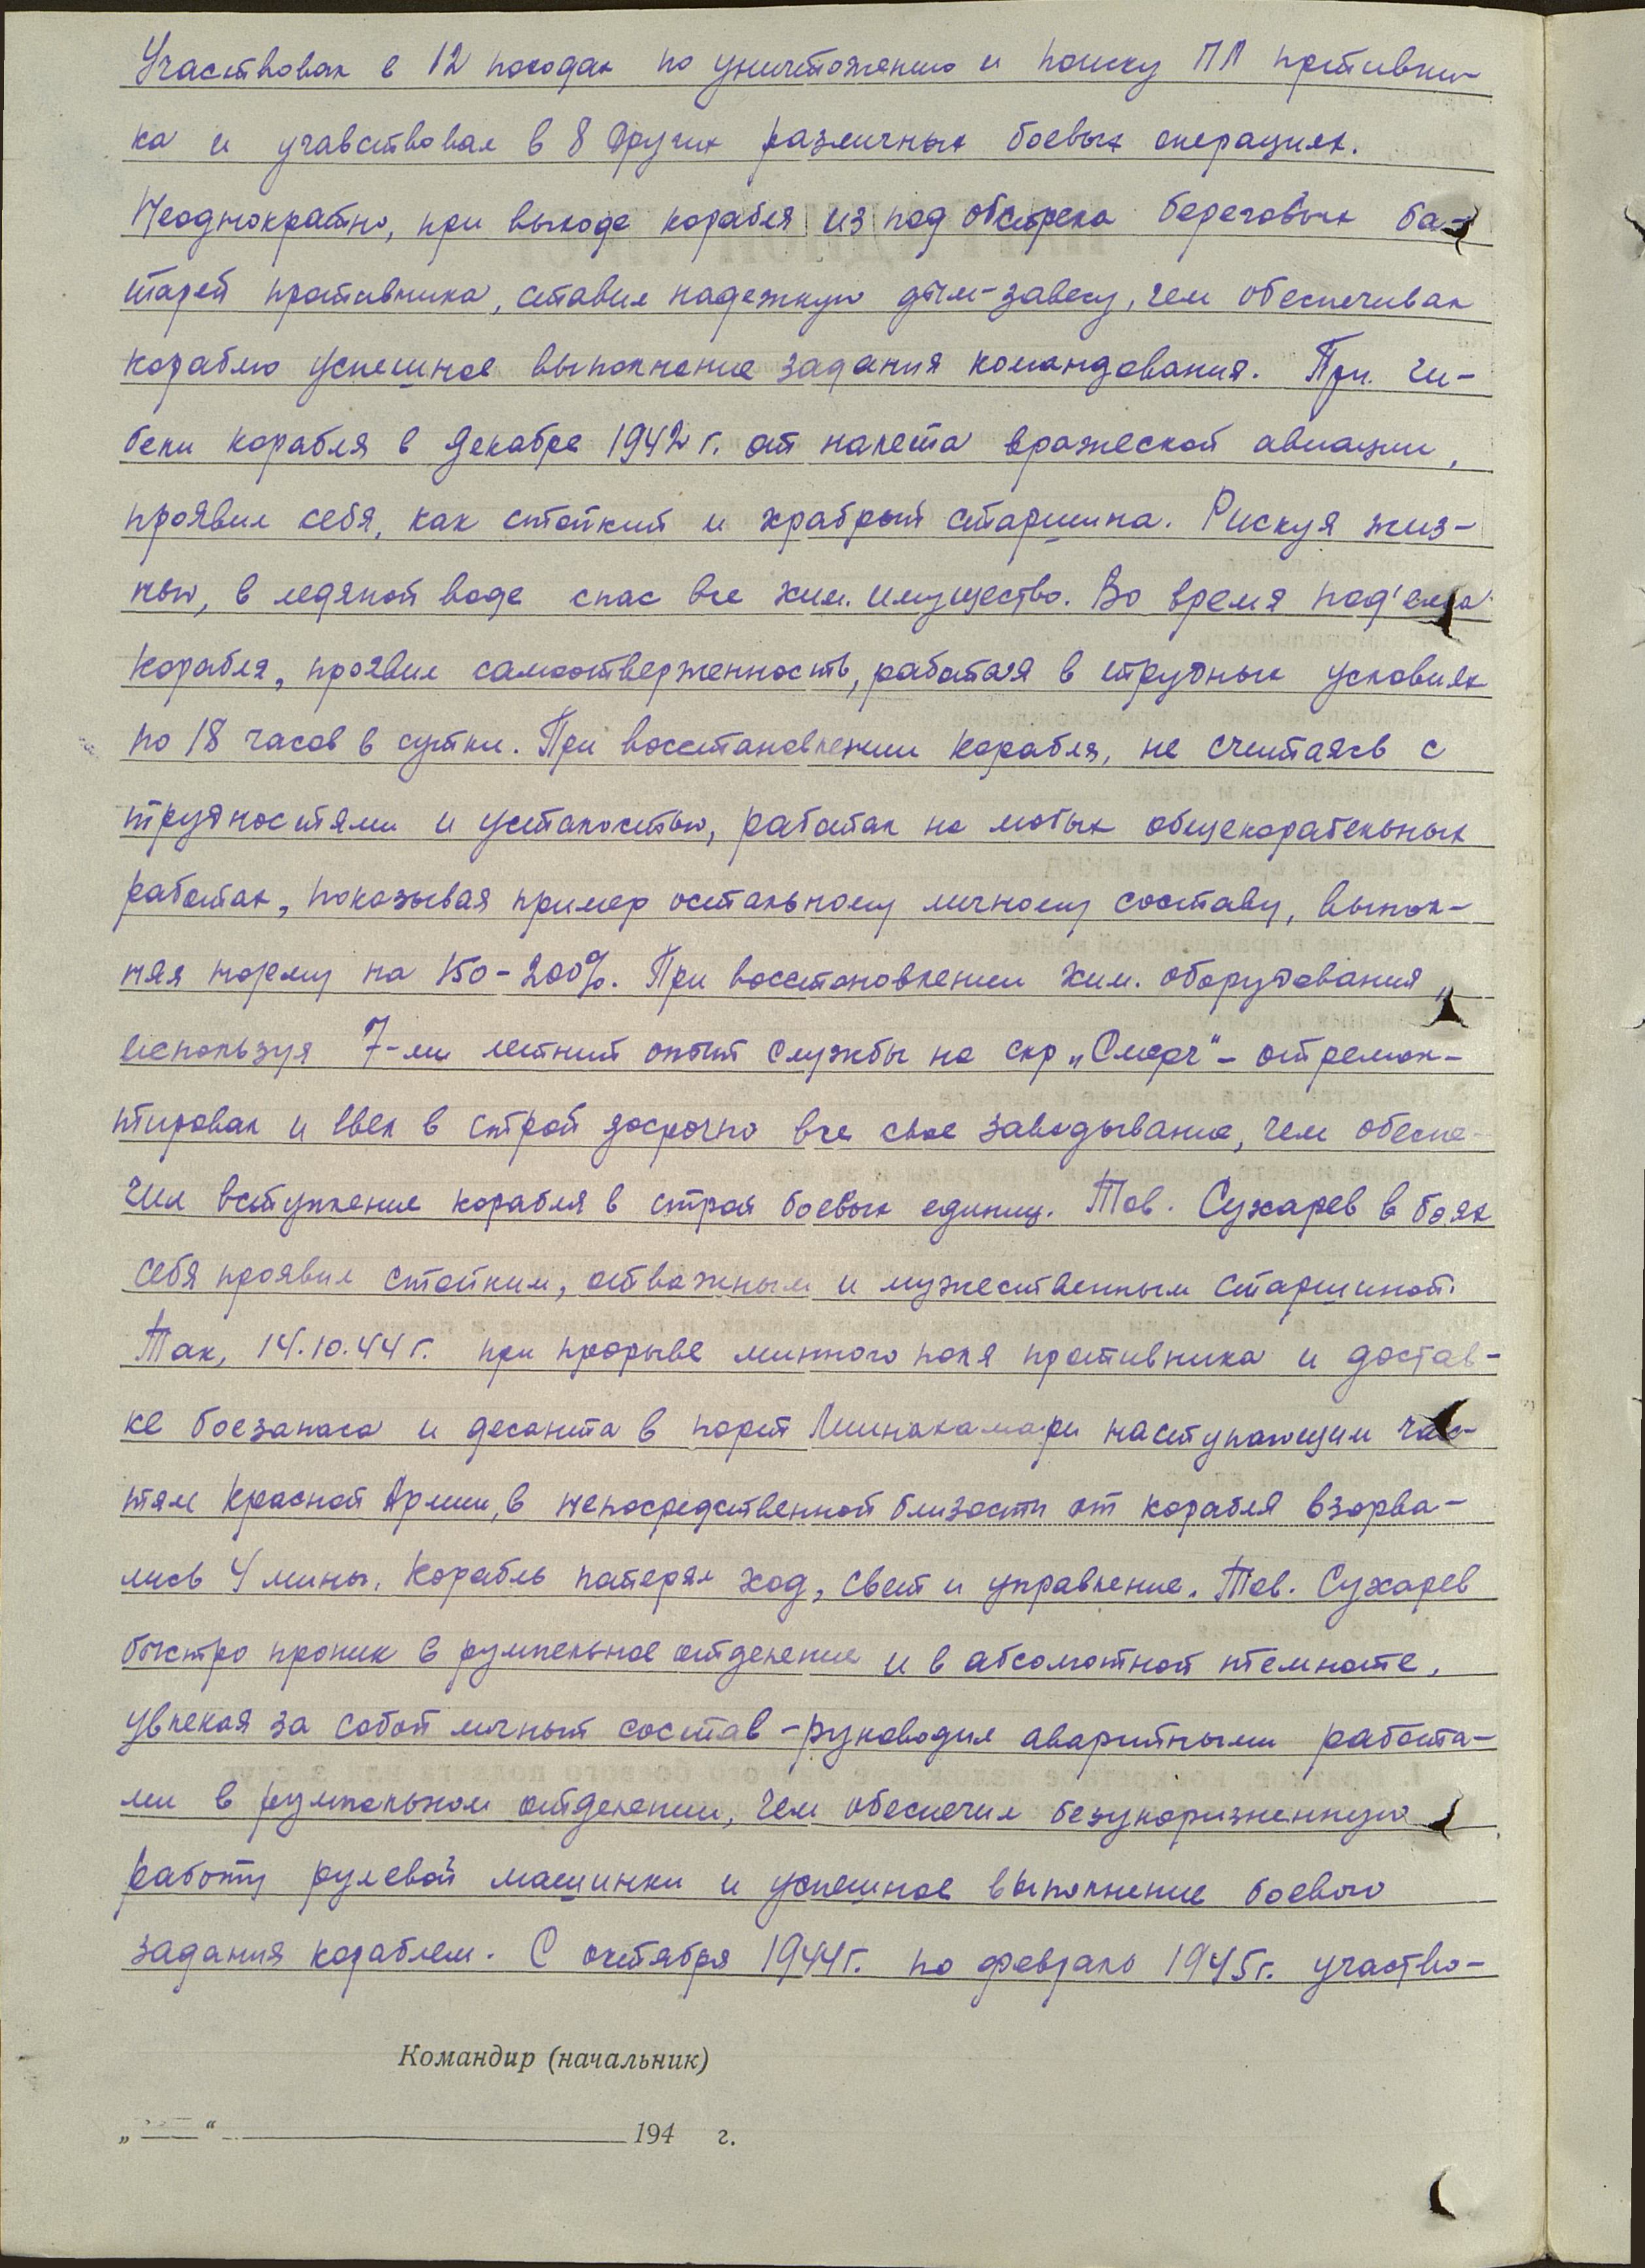 Участвовал в 12 походах по уничтожению и поиску ПЛ противни-
ка и учавствовал в 8 других различных боевых операциях.
Неоднократно, при выходе корабля из под обстрела береговых ба-
тарей противника, ставил надежную дым-завесу, чем обеспечивал
кораблю успешное выполнение задания командования. При ги-
бели корабля в декабре 1942 г. от налета вражеской авиации,
проявил себя, как стойкий и храбрый старшина. Рискуя жиз-
нью, в ледяной воде спас все хим. имущество. Во время под'ема
корабля, проявил самоотверженность, работая в трудных условиях
по 18 часов в сутки. При восстановлении корабля, не считаясь с
трудностями и усталостью, работал на любых общекорабельных
работах, показывая пример остальному личному составу, выпол-
няя норму на 150-200%. При восстановлении хим. оборудования,
используя 7-ми летний опыт службы на скр „Смерч" - отремон-
тировал и ввел в строй досрочно все свое заведывание, чем обеспе-
чил вступление корабля в строй боевых единиц. Тов. Сухарев в боях
себя проявил стойким, отважным и мужественным старшиной.
Так, 14.10.44 г. при прорыве минного поля противника и достав-
ке боезапаса и десанта в порт Лиинахамари наступающим час-
тям Красной Армии, в непосредственной близости от корабля взорва-
лись 4 мины. Корабль потерял ход, свет и управление. Тов. Сухарев
быстро проник в румпельное отделение и в абсолютной темноте,
увлекая за собой личный состав - руководил аварийными работа-
ми в румпельном отделении, чем обеспечил безукоризненную
работу рулевой машинки и успешное выполнение боевого
задания кораблем. С октября 1944 г. по февраль 1945 г. участво-
Командир (начальник)
„ “ 194 г.